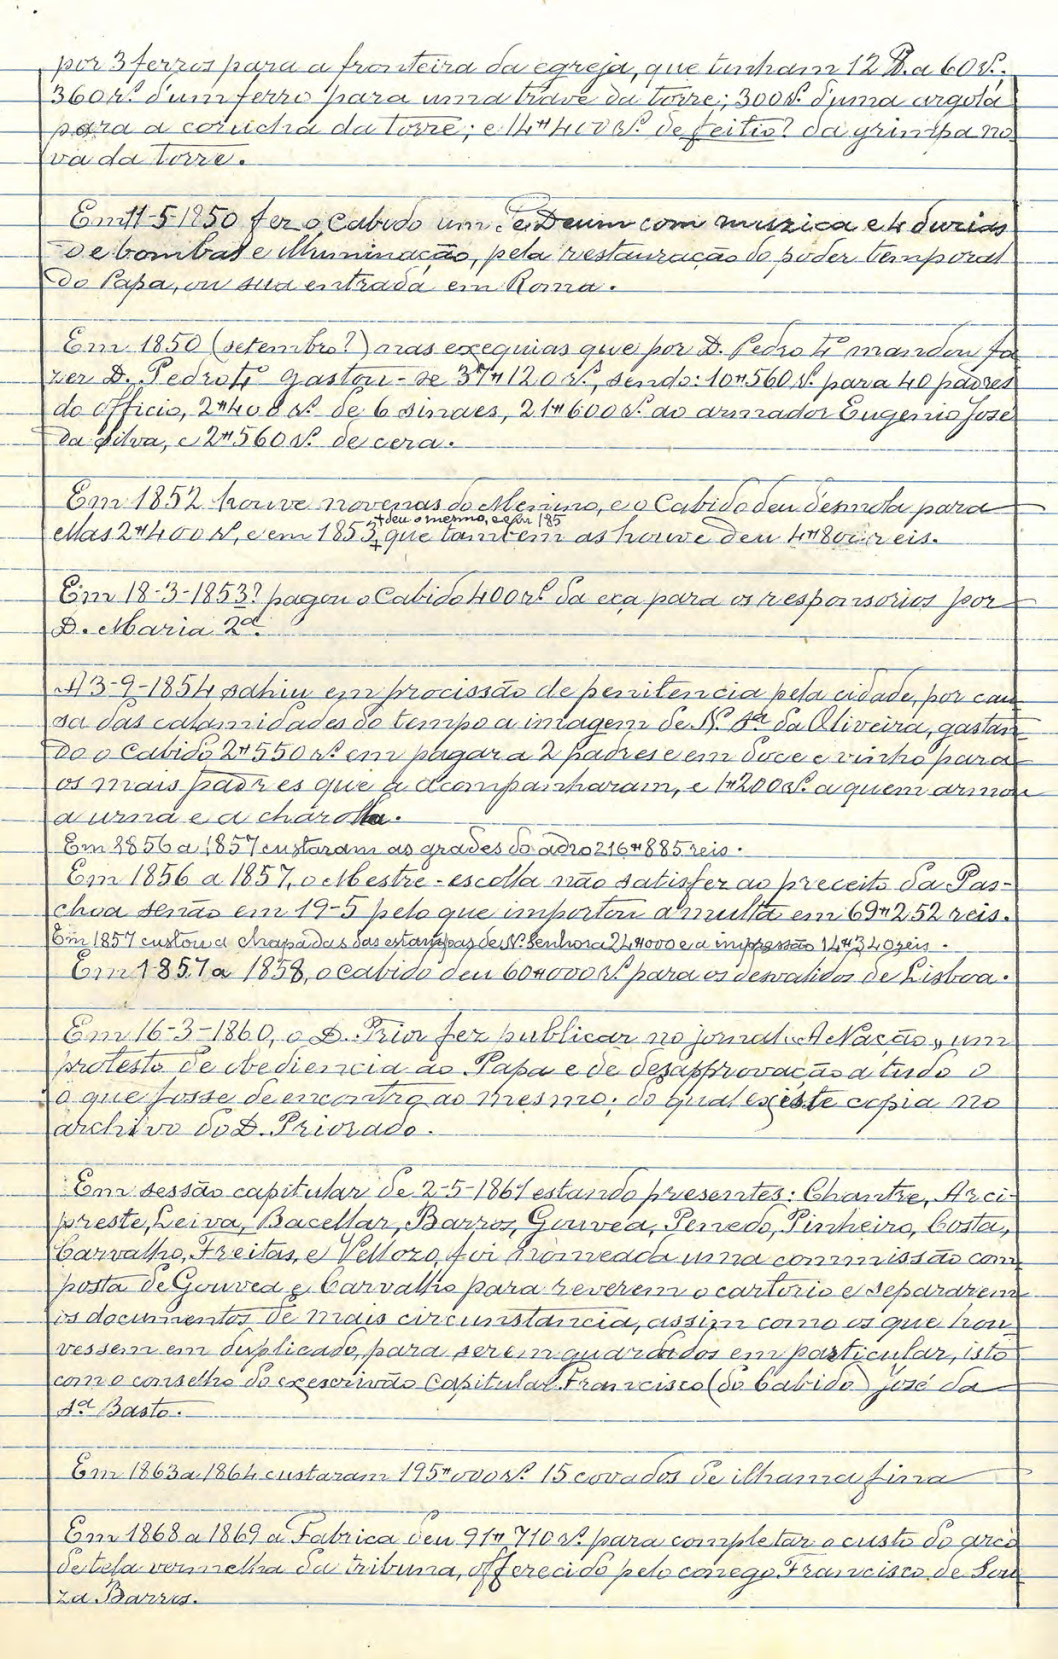 por 3 ferros para a fronteira da egreja, que tinham 12 D. a 60 rs.;
360 rs. d'um ferro para uma trave da torre; 300 rs. d'uma argola
para a corucha da torre; e 14#400 rs. de feitio? da grimpa no
va da torre.
Em 11-5-1850 fez o Cabido um Te Deum com muzica e 4 duzias
de bombas e illuminação, pela restauração do poder temporal
do Papa, ou sua entrada em Roma.
Em 1850 (setembro?) nas exequias que por D. Pedro 4º mandou fa
zer D. Pedro 4º gastou-se 37#120 rs., sendo: 10#560 rs. para 40 padres
do officio, 2#400 rs. de 6 sinaes, 21#600 rs. ao armador Eugenio José
da Silva, e 2#560 rs. de cera.
Em 1852 houve novenas do Menino, e o Cabido deu d'esmola para
+ deu o mesmo, e em 185
ellas 2#400 rs., e em 1853 + que tambem as houve deu 4#800 reis.
Em 18-3-1853? pagou o Cabido 400 rs. da eça para os responsorios por
D. Maria 2ª.
A 3-9-1854 sahiu em procissão de penitencia pela cidade, por cau
sa das calamidades do tempo a imagem de N. Sª da Oliveira, gastan
do o Cabido 2#550 rs. em pagar a 2 padres e em doce e vinho para
os mais padres que a acompanharam, e 1#200 rs. a quem armou
a urna e a charolla.
Em 1856 a 1857 custaram as grades do adro 216#885 reis.
Em 1856 a 1857, o Mestre-escolla não satisfez ao preceito da Pas-
choa senão em 19-5 pelo que importou a multa em 69#252 reis.
Em 1857 custou a chapa das das estampas de N. Senhora 24#000 e a impressão 14#340 reis.
Em 1857 a 1858, o cabido deu 60#000 rs. para os desvalidos de Lisboa.
Em 16-3-1860, o D. Prior fez publicar no jornal "A Nação" um
protesto de obediencia ao Papa e de desapprovação a tudo o
o que fosse de encontro ao mesmo; do qual existe copia no
archivo do D. Priorado.
Em sessão capitular de 2-5-1861 estando presentes: Chantre, Arci-
preste, Leiva, Bacellar, Barros, Gouvea, Penedo, Pinheiro, Costa,
Carvalho, Freitas, e Vellozo, foi nomeada uma commissão com
posta de Gouvea e Carvalho para reverem o cartorio e separarem
os documentos de mais circumstancia, assim como os que hou
vessem em duplicado, para serem guardados em particular, isto
com o conselho do ex escrivão capitular Francisco (do Cabido) José da
Sª Basto.
Em 1863 a 1864 custaram 195#000 rs. 15 covados de ilhama fina
Em 1868 a 1869 a Fabrica deu 91#710 rs. para completar o custo do arco
de tela vermelha da tribuna, offerecido pelo conego Francisco de Sou
za Barros.